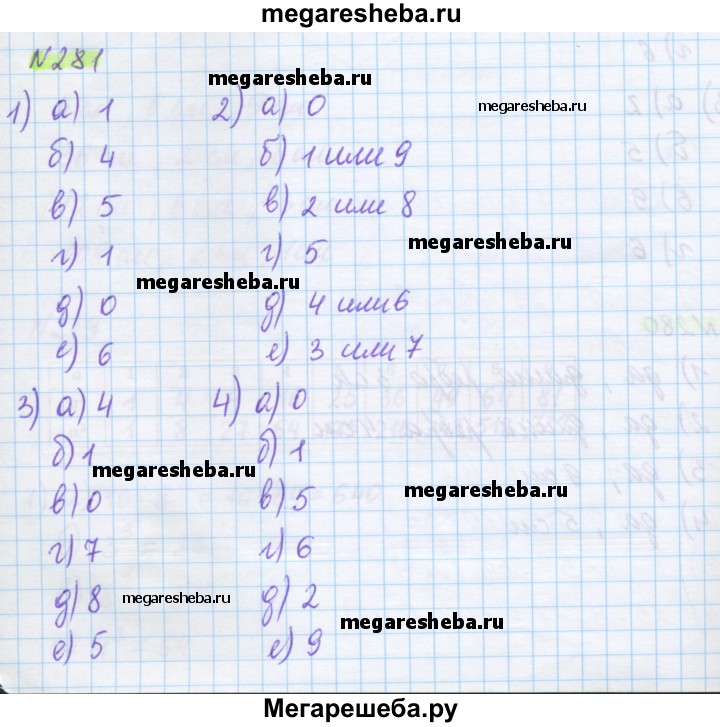 megaresheba.ru
N281
megaresheba.ru
megaresheba.ru
1) а) 1
б) 4
в) 5
г) 1
д) 0
е) 6
2) а) 0
б) 1 или 9
в) 2 или 8
г) 5
д) 4 или 6
е) 3 или 7
megaresheba.ru
megaresheba.ru
3) а) 4
б) 1
в) 0
г) 7
д) 8
е) 5
4) а) 0
б) 1
в) 5
г) 6
д) 2
е) 9
megaresheba.ru
megaresheba.ru
megaresheba.ru
megaresheba.ru
Мегарешеба.ру